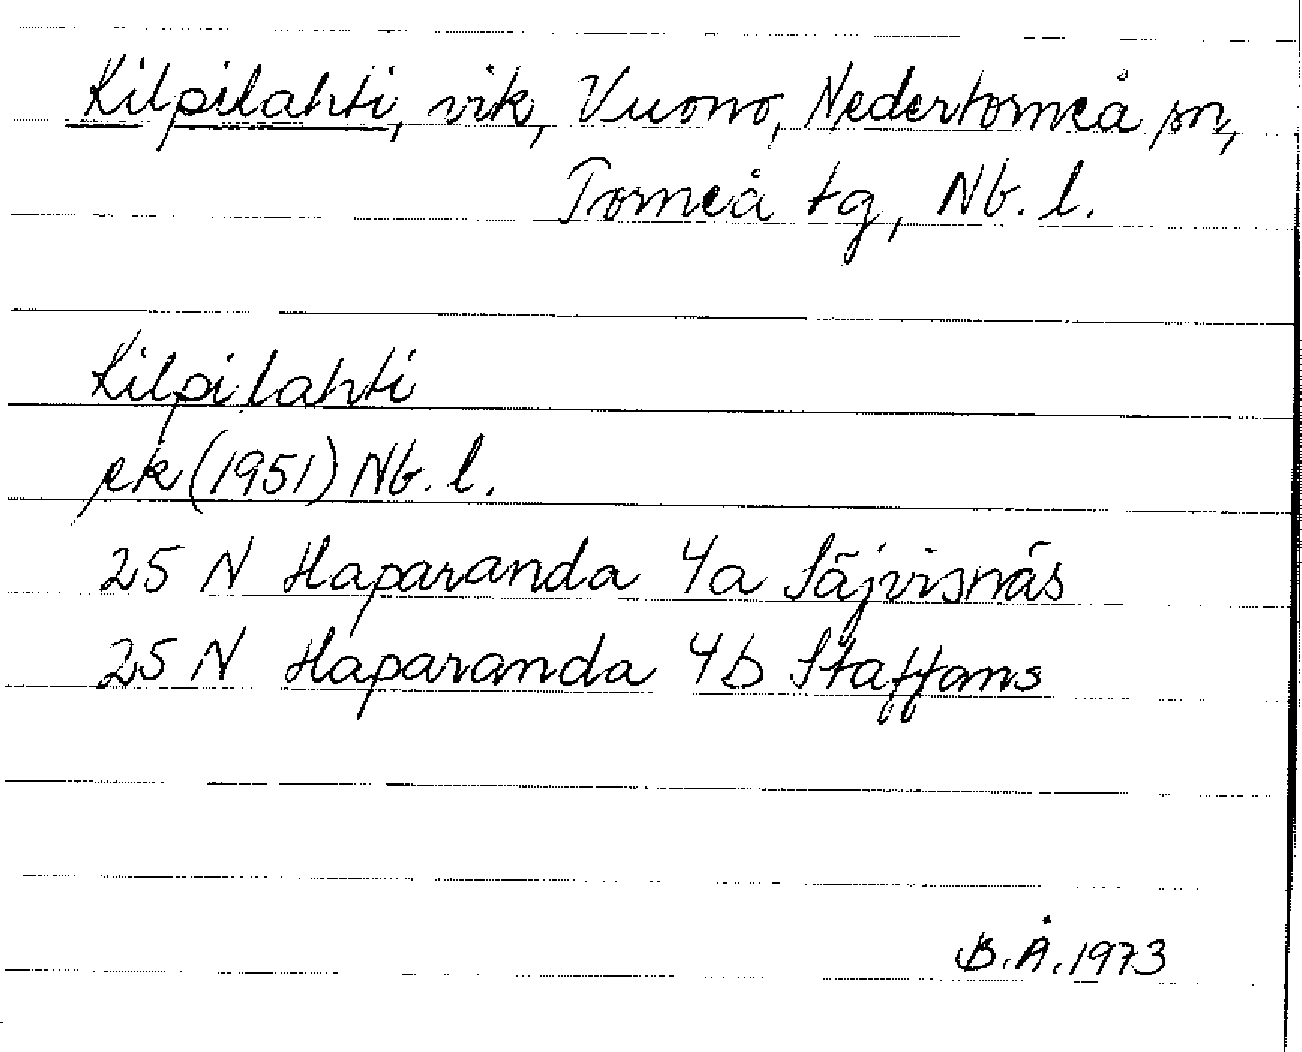 Kilpilahti, vik, Vuono, Nedertorneå sn,
Torneå tg, Nb. l.
Kilpilahti
ek (1951) Nb. l.
25 N Haparanda 4a Säjvisnäs
25 N Haparanda 4b Staffans
B.Å. 1973